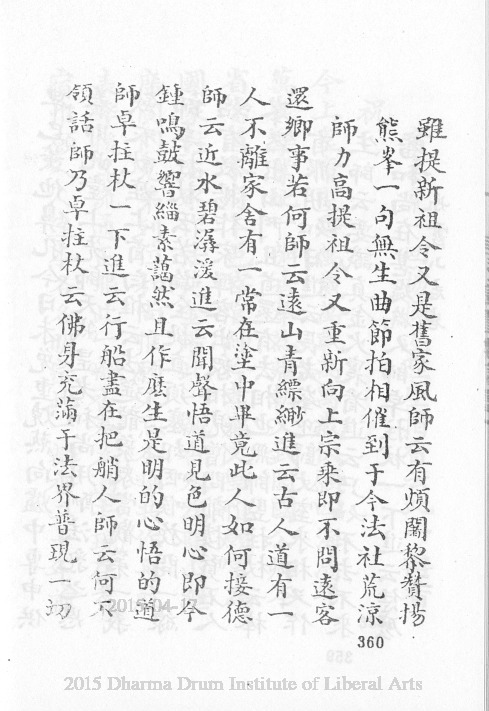 雖提新祖令又是舊家風師云有煩闍黎贊揚
熊峯一句無生曲節拍相催到于今法社荒涼
師力高提祖令又重新向上宗乘即不問遠客
還鄉事若何師云遠山青縹緲進云古人道有一
人不離家舍有一常在塗中畢竟此人如何接德
師云近水碧潺湲進云聞聲悟道見色明心即今
鍾鳴鼓響緇素藹然且作麼生是明的心悟的道
師卓拄杖一下進云行船盡在把艄人師云何不
領話師乃卓拄杖云佛身充滿于法界普現一切
360
2015 Dharma Drum Institute of Liberal Arts